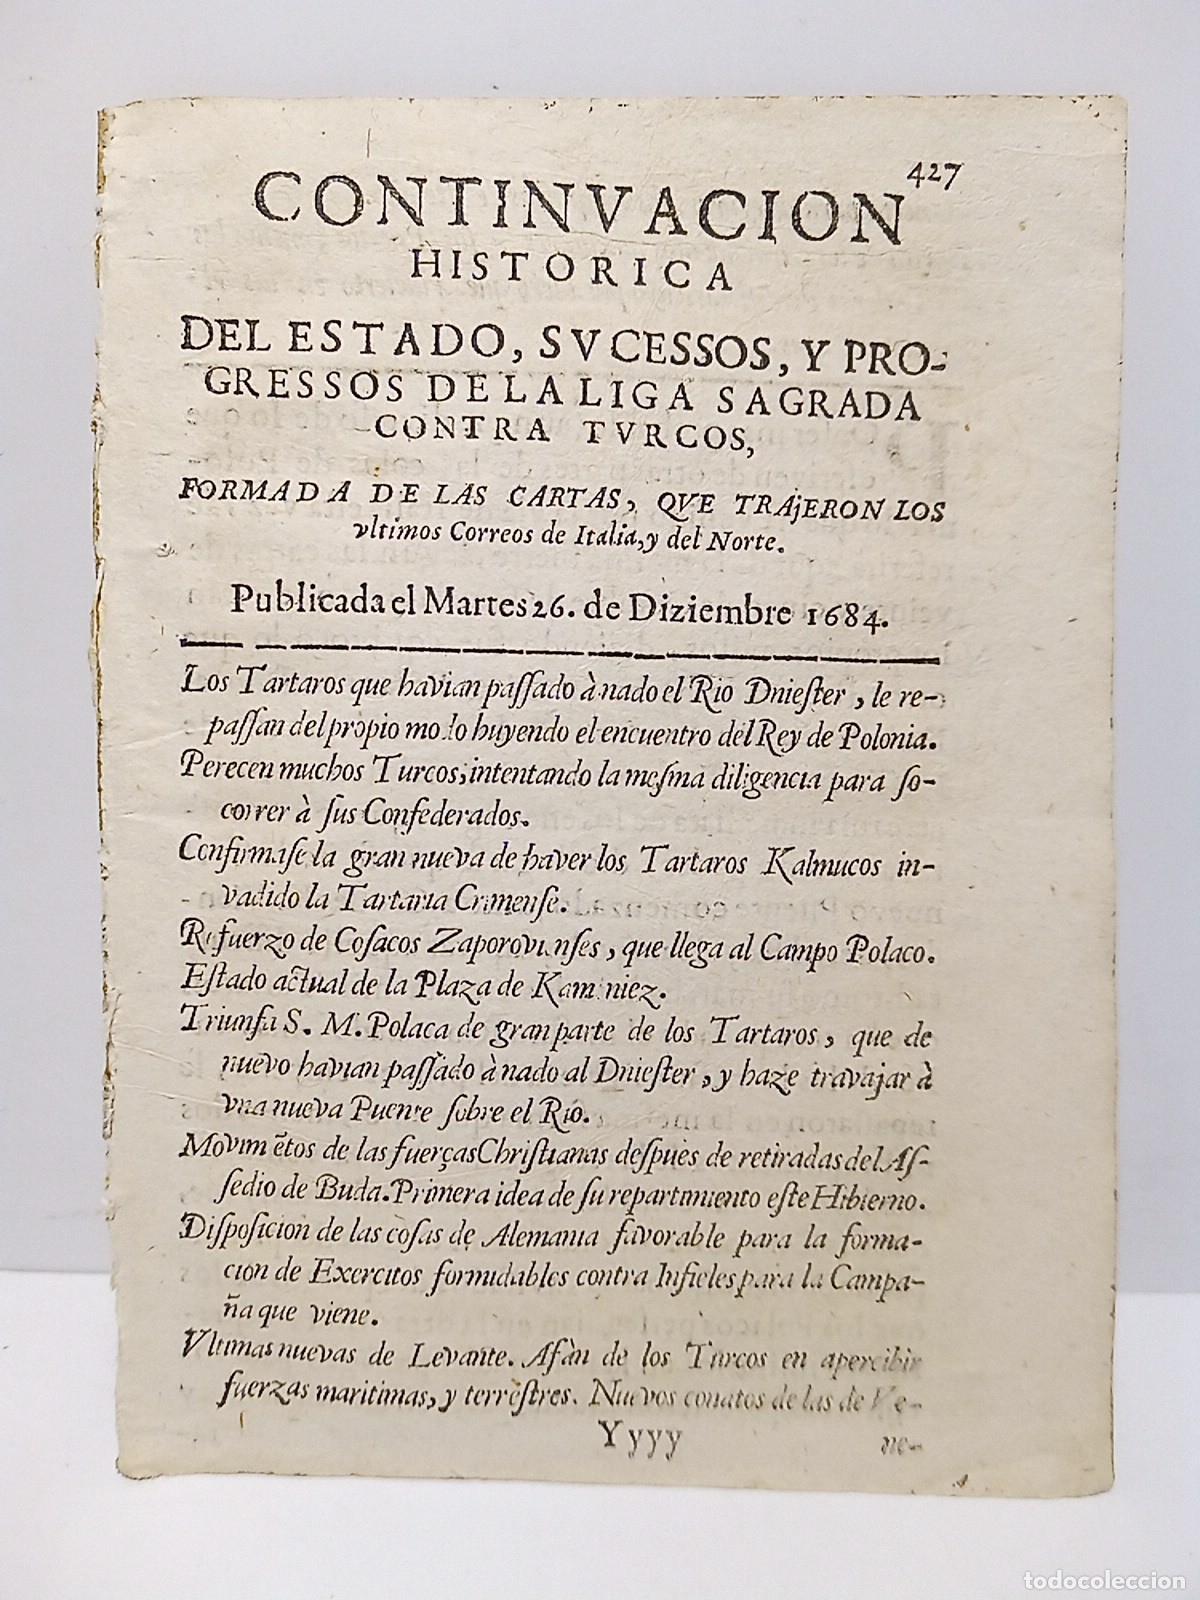 427
CONTINVACION
HISTORICA
DEL ESTADO, SVCESSOS, Y PRO-
GRESSOS DE LA LIGA SAGRADA
CONTRA TVRCOS,
FORMADA DE LAS CARTAS, QVE TRAjERON LOS
vltimos Correos de Italia, y del Norte.
Publicada el Martes 26. de Diziembre 1684.
Los Tartaros que havian paſſado à nado el Rio Dnieſter, le re-
paſſan del propio modo huyendo el encuentro del Rey de Polonia.
Perecen muchos Turcos, intentando la meſma diligencia para ſo-
correr à ſus Confederados.
Confirmaſe la gran nueva de haver los Tartaros Kalmucos in-
vadido la Tartaria Crimenſe.
Refuerzo de Coſacos Zaporovianſes, que llega al Campo Polaco.
Eſtado actual de la Plaza de Kaminiez.
Triunfa S. M. Polaca de gran parte de los Tartaros, que de
nuevo havian paſſado à nado al Dnieſter, y haze travajar à
vna nueva Puente ſobre el Rio.
Movimẽtos de las fuerças Chriſtianas deſpues de retiradas del Aſ-
ſedio de Buda. Primera idea de ſu repartimiento eſte Hibierno.
Diſpoſicion de las coſas de Alemania favorable para la forma-
cion de Exercitos formidables contra Infieles para la Campa-
ña que viene.
Vltimas nuevas de Levante. Afàn de los Turcos en apercibir
fuerzas maritimas, y terreſtres. Nuevos conatos de las de Ve-
Yyyy ne-
todocoleccion